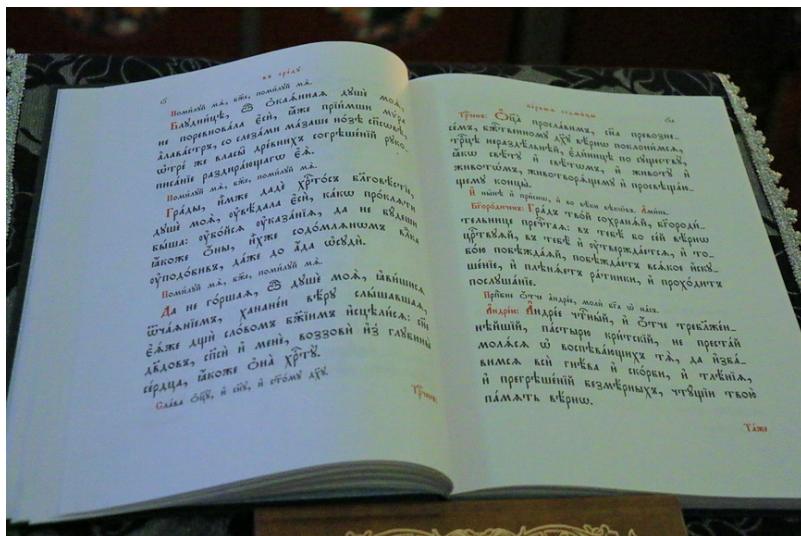 въ сре́дꙋ
Поми́лꙋй мѧ̀, бж҃е, поми́лꙋй мѧ̀.
Блꙋдни́цѣ, ѽ ѻ҆каѧ́ннаѧ дꙋшѐ моѧ̀,
не поревнова́ла є҆сѝ, ꙗ҆́же прїи́мши мѵ́ра
а҆лава́стръ, со слеза́ми ма́заше но́зѣ сп҃совѣ,
ѿтре́ же власы̀ дре́внихъ согрѣше́нїй рꙋко-
писа́нїе раздира́ющагѡ є҆ѧ̀.
Поми́лꙋй мѧ̀, бж҃е, поми́лꙋй мѧ̀.
Гра́ды, и҆̀мже дадѐ хрⷭ҇то́съ благовѣ́стїе,
дꙋшѐ моѧ̀, ᲂу҆вѣ́дала є҆сѝ, ка́кѡ про́клѧти
бы́ша: ᲂу҆бо́йсѧ ᲂу҆каза́нїѧ, да не бꙋ́деши
ꙗ҆́коже ѻ҆́ны, и҆́хже содо́млѧнѡмъ влⷣка
ᲂу҆подо́бивъ, да́же до а҆́да ѡ҆сꙋдѝ.
Поми́лꙋй мѧ̀, бж҃е, поми́лꙋй мѧ̀.
Да не го́ршаѧ, ѽ дꙋшѐ моѧ̀, ꙗ҆ви́шисѧ
ѿча́ѧнїемъ, ханане́и вѣ́рꙋ слы́шавшаѧ,
є҆ѧ́же дщѝ сло́вомъ бж҃їимъ и҆сцѣли́сѧ: сн҃е
дв҃довъ, сп҃сѝ и҆ менѐ, воззовѝ и҆з̾ глꙋбины̀
се́рдца, ꙗ҆́коже ѻ҆на̀ хрⷭ҇тꙋ̀.
Сла́ва ѻ҆ц҃ꙋ̀, и҆ сн҃ꙋ, и҆ ст҃о́мꙋ дх҃ꙋ.
Трⷪ҇иченъ:
пе́рвыѧ седми́цы
Трⷪ҇иченъ: Ѻ҆ц҃а̀ просла́вимъ, сн҃а превозне-
се́мъ, бжⷭ҇твенномꙋ дх҃ꙋ вѣ́рнѡ поклони́мсѧ,
трⷪ҇цѣ нераздѣ́льнѣй, є҆ди́ницѣ по сꙋществꙋ̀,
ꙗ҆́кѡ свѣ́тꙋ и҆ свѣ́тѡмъ, и҆ животꙋ̀ и҆
живо́тѡмъ, животворѧ́щемꙋ и҆ просвѣща́ю-
щемꙋ концы̀.
И҆ ны́нѣ и҆ при́снѡ, и҆ во вѣ́ки вѣкѡ́въ. А҆ми́нь.
Бг҃оро́диченъ: Гра́дъ тво́й сохранѧ́й, бг҃ороди́-
тельнице пречⷭ҇таѧ: въ тебѣ́ бо се́й вѣ́рнѡ
црⷭ҇твꙋѧй, въ тебѣ̀ и҆ ᲂу҆твержда́етсѧ, и҆ то-
бо́ю побѣжда́ѧй, побѣжда́етъ всѧ́кое и҆скꙋ-
ше́нїе, и҆ плѣнѧ́етъ ра́тники, и҆ прохо́дитъ
послꙋша́нїе.
Прпⷣбне ѻ҆́тче а҆ндре́е, молѝ бг҃а ѡ҆ на́съ.
А҆ндре́ю: А҆ндре́е чтⷭ҇ны́й, и҆ ѻ҆́тче треблаже́н-
нѣйшїй, па́стырю кри́тскїй, не преста́й
молѧ́сѧ ѡ҆ воспѣва́ющихъ тѧ̀, да и҆зба́-
вимсѧ всѝ гнѣ́ва и҆ ско́рби, и҆ тлѣ́нїѧ,
и҆ прегрѣше́нїй безмѣ́рныхъ, чтꙋ́щїи твою̀
па́мѧть вѣ́рнѡ.
Та́же